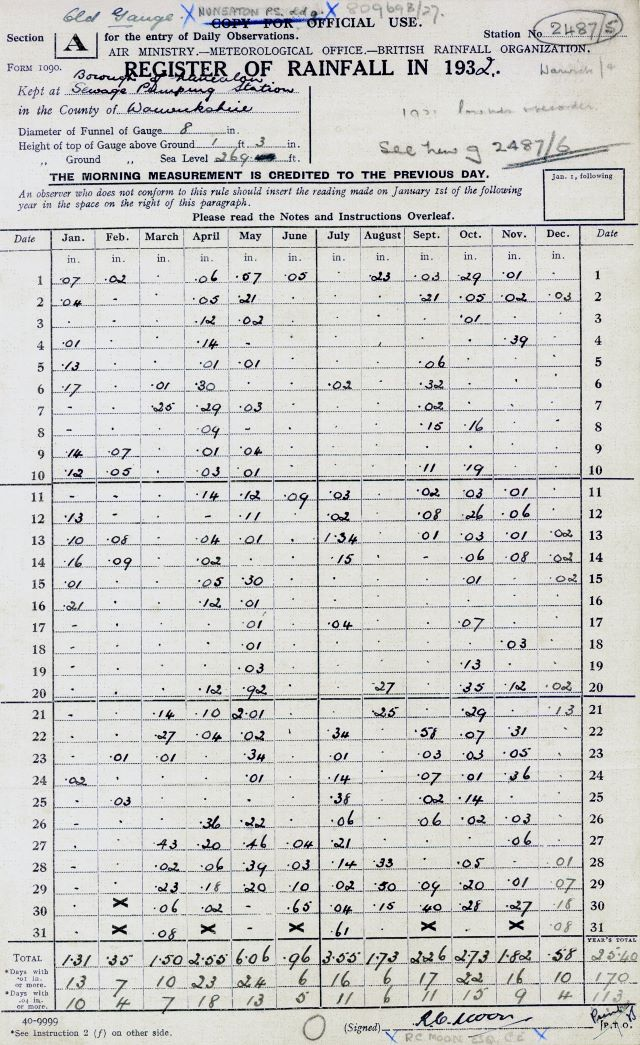 Old Gauge X NUNEATON P.S. X 809698/27.
COPY FOR OFFICIAL USE.
Section A for the entry of Daily Observations. Station No. 2487/5
AIR MINISTRY.—METEOROLOGICAL OFFICE.—BRITISH RAINFALL ORGANIZATION.
FORM 1090. REGISTER OF RAINFALL IN 1932.
Borough of Nuneaton Warwick/4
Kept at Sewage Pumping Station
in the County of Warwickshire
Diameter of Funnel of Gauge 8 in.
Height of top of Gauge above Ground 1 ft 3 in. See new g 2487/6
„ Ground „ Sea Level 269 ft.
THE MORNING MEASUREMENT IS CREDITED TO THE PREVIOUS DAY. Jan. 1, following
An observer who does not conform to this rule should insert the reading made on January 1st of the following
year in the space on the right of this paragraph.
Please read the Notes and Instructions Overleaf.
Date Jan. Feb. March April May June July August Sept. Oct. Nov. Dec. Date
in. in. in. in. in. in. in. in. in. in. in. in.
1 .07 .02 · .06 .57 .05 · .23 .03 .29 .01 · 1
2 .04 - · .05 .21 · · · .21 .05 .02 .03 2
3 · · · .12 .02 · · · · .01 · · 3
4 .01 · · .14 - · · · · · .39 · 4
5 .13 · · .01 .01 · · · .06 · · · 5
6 .17 · .01 .30 · · .02 · .32 · · · 6
7 - · .25 .29 .03 · · · .02 · · · 7
8 · · · .09 - · · · .15 .16 · · 8
9 .14 .07 · .01 .04 · · · · · · · 9
10 .12 .05 · .03 .01 · · · .11 .19 · · 10
11 - - · .14 .12 .09 .03 · .02 .03 .01 · 11
12 .13 · · - .11 · .02 · .08 .26 .06 · 12
13 .10 .08 · .04 .01 · 1.34 · .01 .03 .01 .02 13
14 .16 .09 · .02 · · .15 · - .06 .08 .02 14
15 .01 · · .05 .30 · · · · .01 · .02 15
16 .21 · · .12 .01 · · · · · · · 16
17 - · · · .01 · .04 · · .07 · · 17
18 · · · · .01 · · · · · .03 · 18
19 · · · · .03 · · · · .13 · · 19
20 · · · .12 .92 · · .27 · .35 .12 .02 20
21 - · .14 .10 2.01 · · .25 · .29 · .13 21
22 · · .27 .04 .02 · .34 · .51 .07 .31 · 22
23 · .01 .01 · .34 · .01 · .03 .03 .05 · 23
24 .02 · · · .01 · .14 · .07 .01 .36 · 24
25 · .03 · · · · .38 · .02 .14 · · 25
26 - · · .36 .22 · .06 · .06 .02 .03 · 26
27 · · .43 .20 .46 .04 .21 · · · .06 · 27
28 · · .02 .06 .39 .03 .14 .33 · .05 · .01 28
29 · · .23 .18 .20 .10 .02 .50 .09 .20 .01 .07 29
30 · X .06 .02 · .65 .04 .15 .40 .28 .27 .18 30
31 · X .08 X · X .61 · X · X .08 31
YEAR'S TOTAL
TOTAL 1.31 .35 1.50 2.55 6.06 .96 3.55 1.73 2.26 2.73 1.82 .58 25.40
*Days with .01 in. or more. 13 7 10 23 24 6 16 6 17 22 16 10 170
*Days with .04 in. or more. 10 4 7 18 13 5 11 6 11 15 9 4 113
40-9999
*See Instruction 2 (f) on other side. (Signed) R.C. Moon [P.T.O.
X RC MOON ESQ. C.E X